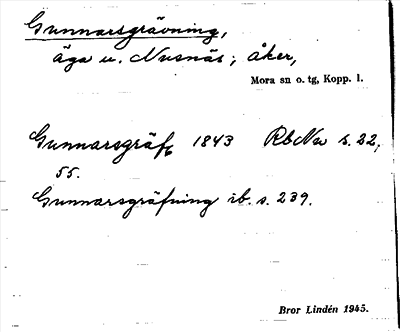 Gunnarsgrävning,
äga u. Nusnäs; åker,
Mora sn o. tg, Kopp. l.
Gunnarsgräf, 1843 RbNu s. 22,
55.
Gunnarsgräfning ib. s. 239.
Bror Lindén 1945.